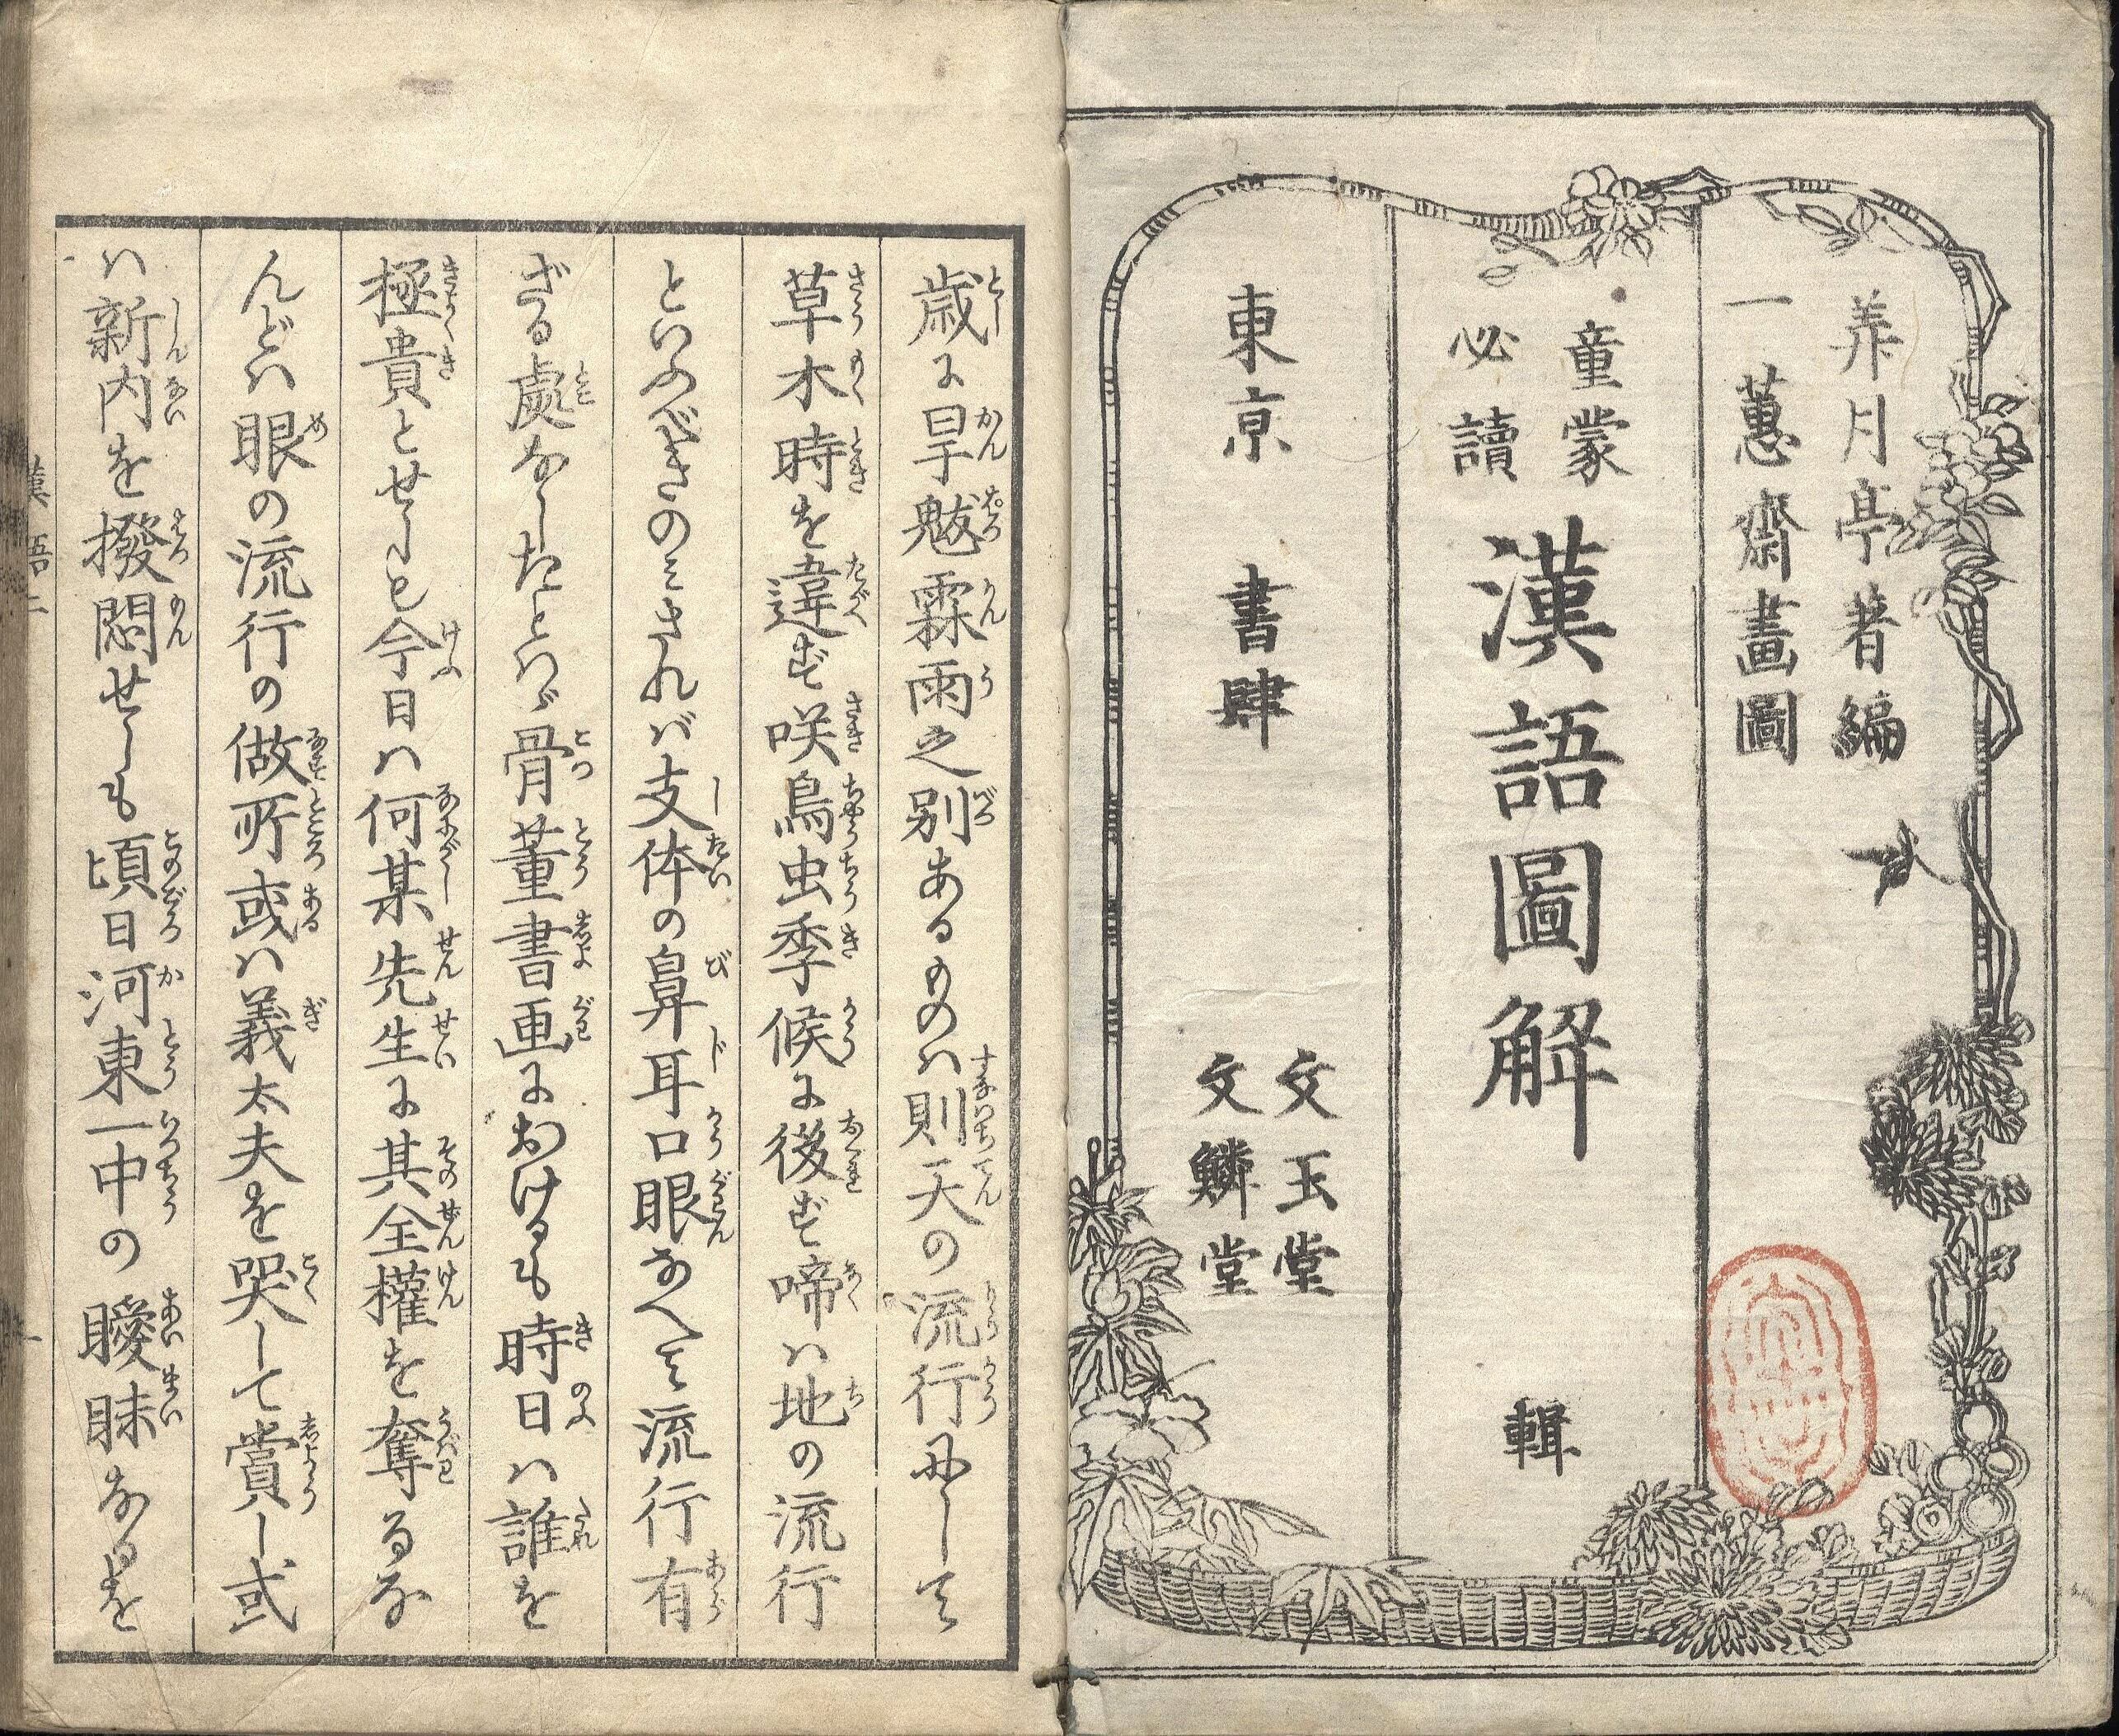 弄月亭著編
一蕙齋畫圖
童蒙
必讀
漢語圖解
輯
東京 書肆
文玉堂
文鱗堂
歳に旱魃霖雨之別あるものハ則天の流行にして
草木時を違ず咲鳥虫季候に後ず啼ハ地の流行
といふべきのミされバ支体の鼻耳口眼なへて流行有
ざる處なしたとハゞ骨董書画におけるも時日ハ誰を
極貴とせしも今日ハ何某先生に其全權を奪るな
んどハ眼の流行の做所或ハ義太夫を哭して賞し或
ハ新内を撥悶せしも頃日河東一中の曖昧なるを
漢語二